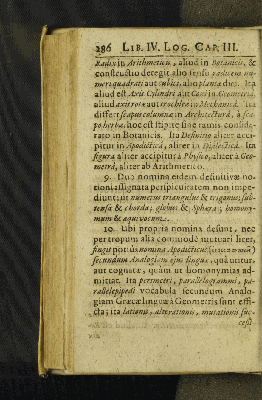 286 LIB. IV. LOG. CAP. III.
Radix in Arithmetica, aliud in Botanicis, &
constructio detegit alio sensu radicem nu-
meri quadrati aut cubici, alio plantæ dici. Ita
aliud est Axis Cylindri aut Coni in Geometria,
aliud axis rotæ aut trochleæ in Mechanica. Ita
differt scapus columnæ in Architectura, à sca-
po herbæ, hoc est stipite sine ramis conside-
rato in Botanicis. Ita Definitio aliter acci-
pitur in Apodictica, aliter in Dialectica. Ita
figura aliter accipitur à Physico, aliter à Geo-
metra, aliter ab Arithmetico.
9. Duo nomina eidem definitivæ no-
tioni assignata perspicuitatem non impe-
diunt: ut numerus triangulus & trigonus; sub-
tensa & chorda; globus & Sphæra; homony-
mum & æquivocum.
10. Ubi propria nomina desunt, nec
per tropum alia commodè mutuari licet,
fingit notiuis nomina Apodicticus
secundum Analogiam ejus linguæ, quâ utitur,
aut cognatæ, quàm ut homonymias ad-
mittat. Ita perimetri, parallelogrammi, pa-
rallelepipedi vocabula secundum Analo-
giam Græcæ linguæ à Geometris sunt effi-
cta; ita lationis, alterationis, mutationis suc-
cessi